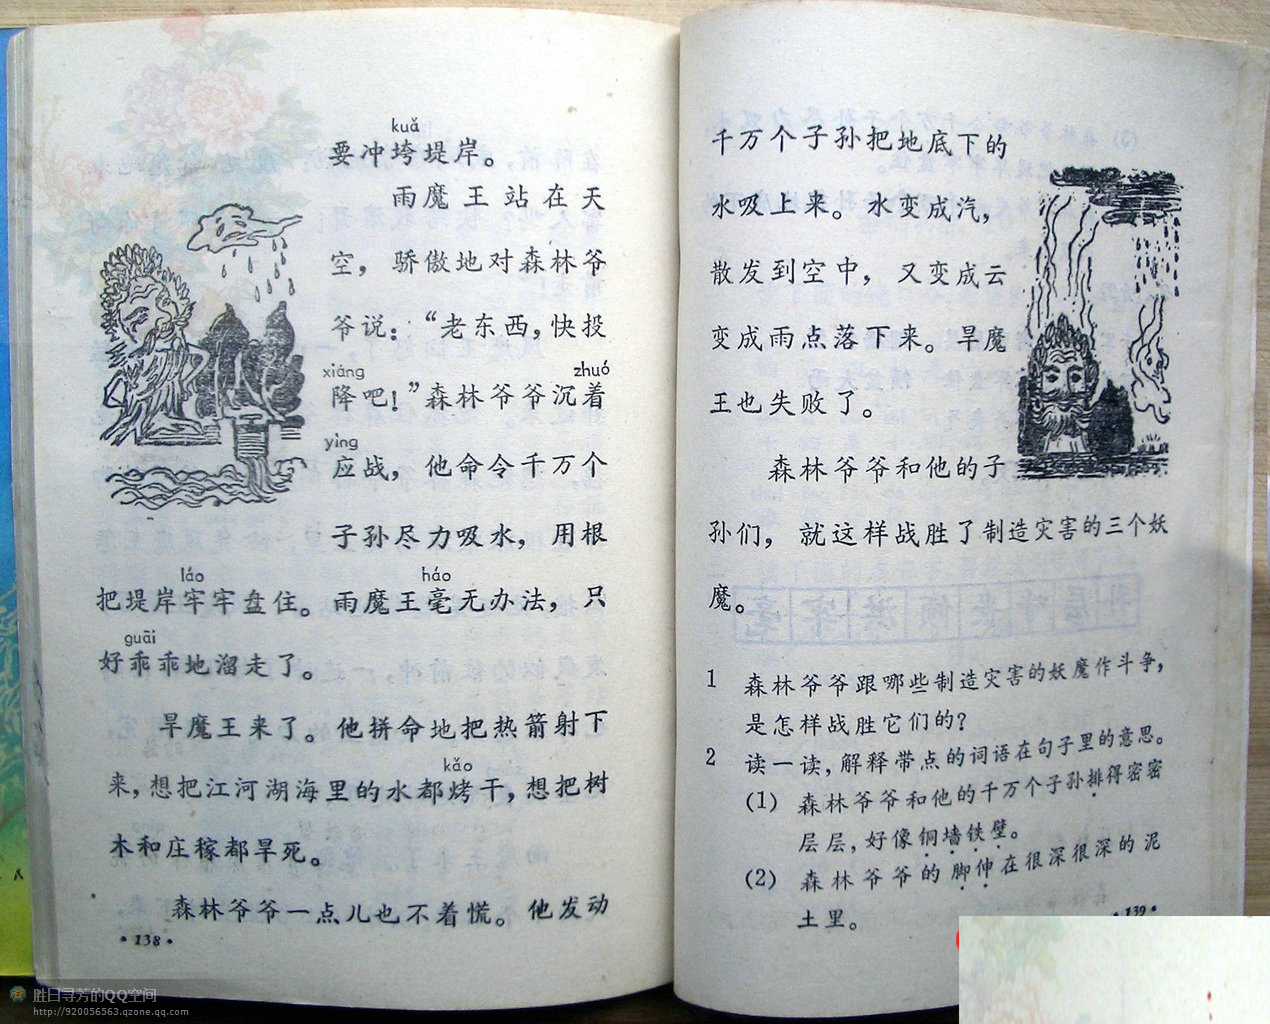 kuǎ
要冲垮堤岸。
雨魔王站在天
空，骄傲地对森林爷
爷说：“老东西，快投
xiáng zhuó
降吧！”森林爷爷沉着
yìng
应战，他命令千万个
子孙尽力吸水，用根
láo háo
把堤岸牢牢盘住。雨魔王毫无办法，只
guāi
好乖乖地溜走了。
旱魔王来了。他拼命地把热箭射下
kǎo
来，想把江河湖海里的水都烤干，想把树
木和庄稼都旱死。
森林爷爷一点儿也不着慌。他发动
·138·
千万个子孙把地底下的
水吸上来。水变成汽，
散发到空中，又变成云
变成雨点落下来。旱魔
王也失败了。
森林爷爷和他的子
孙们，就这样战胜了制造灾害的三个妖
魔。
1 森林爷爷跟哪些制造灾害的妖魔作斗争，
是怎样战胜它们的？
2 读一读，解释带点的词语在句子里的意思。
(1) 森林爷爷和他的千万个子孙排得密密
层层，好像铜墙铁壁。
(2) 森林爷爷的脚伸在很深很深的泥
土里。
·139·
胜日寻芳的QQ空间
http://920056563.qzone.qq.com